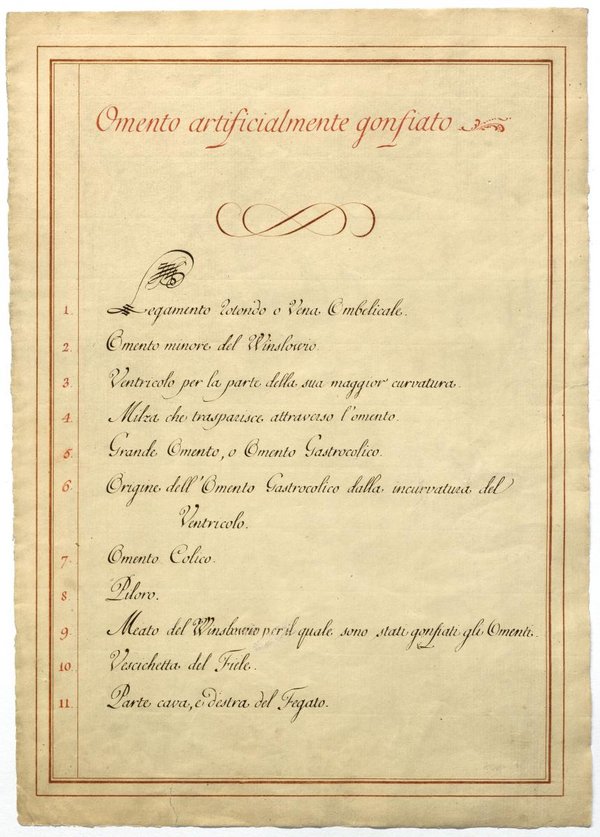 Omento artificialmente gonfiato
1. Legamento rotondo o Vena Ombelicale.
2. Omento minore del Winslowio.
3. Ventricolo per la parte della sua maggior curvatura.
4. Milza che trasparisce attraverso l'omento.
5. Grande Omento, o Omento Gastrocolico.
6. Origine dell'Omento Gastrocolico dalla incurvatura del
Ventricolo.
7. Omento Colico.
8 Piloro.
9. Meato del Winslowio per il quale sono stati gonfiati gli Omenti.
10. Vescichetta del Fiele.
11. Parte cava, e destra del Fegato.